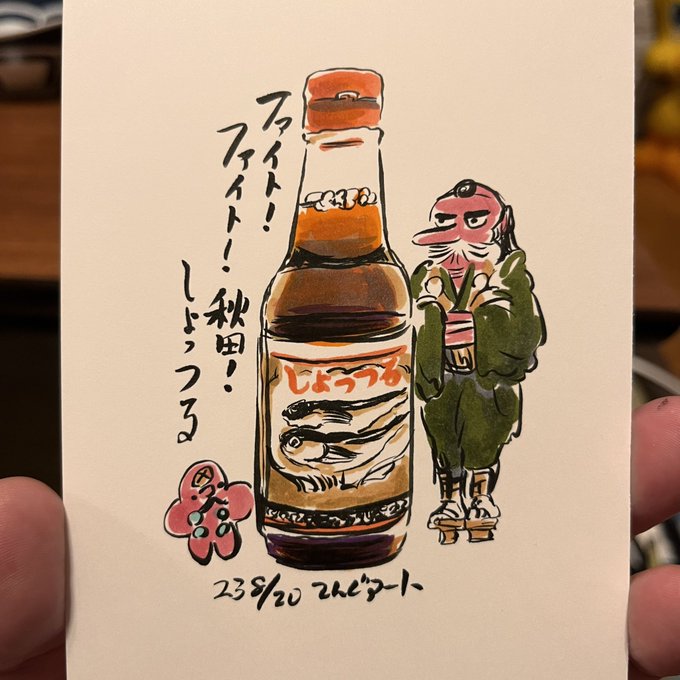 ファイト!
ファイト!秋田!
しょっつる
しょっつる
23 8/20 てんぐアート